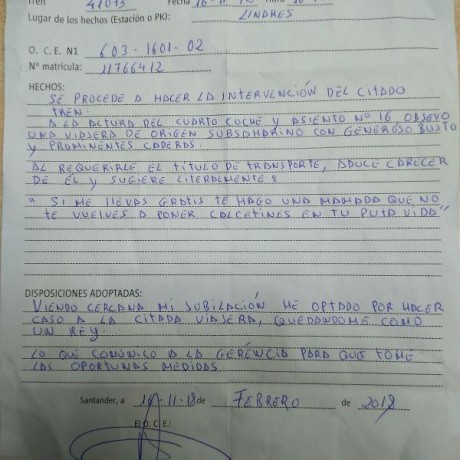 Tren 41013 Fecha 16-11-
Lugar de los hechos (Estación o PK): LINARES
O. C. E. N1 603-1601-02
Nº matrícula: 11766412
HECHOS:
SE PROCEDE A HACER LA INTERVENCIÓN DEL CITADO
TREN.
A LA ALTURA DEL CUARTO COCHE Y ASIENTO Nº 16, OBSEVO
UNA VIAJERA DE ORIGEN SUBSAHARINO CON GENEROSO BUSTO
Y PROMINENTES CADERAS.
AL REQUERIRLE EL TÍTULO DE TRANSPORTE, ADUCE CARECER
DE ÉL Y SUGIERE LITERALMENTE:
" SI ME LLEVAS GRATIS TE HAGO UNA MAMADA QUE NO
TE VUELVES A PONER CALCETINES EN TU PUTA VIDA"
DISPOSICIONES ADOPTADAS:
VIENDO CERCANA MI JUBILACIÓN HE OPTADO POR HACER
CASO A LA CITADA VIAJERA, QUEDANDOME COMO
UN REY.
LO QUE COMUNICO A LA GERENCIA PARA QUE TOME
LAS OPORTUNAS MEDIDAS.
Santander, a 16-11-18 de FEBRERO de 2018
El O. C. E.: